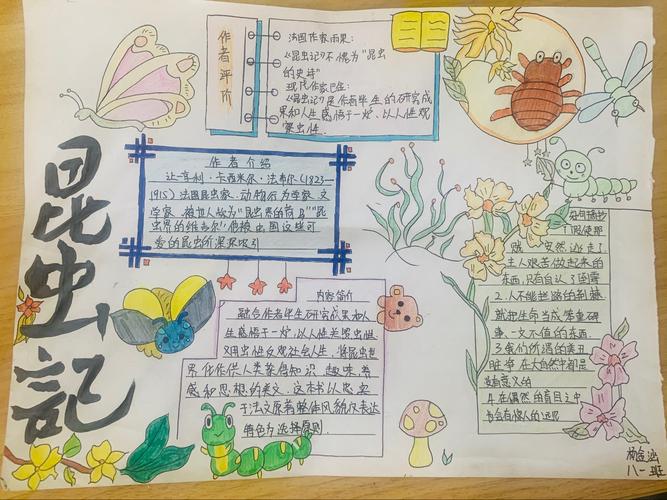 昆虫記
作者评价
法国作家雨果:
《昆虫记》不愧为"昆虫
的史诗"
现代作家巴金:
《昆虫记》是作者毕生的研究成
果和人生感悟于一炉,以人性观
察虫性
作者介绍
让-亨利·卡西米尔·法布尔(1823—
1915)法国昆虫家、动物行为学家、文
学家。被世人称为"昆虫界的荷马""昆
虫界的维吉尔"
爱的昆虫所深深吸引
内容简介
融合作者毕生研究成果和人
生感悟于一炉,以人性关照虫性
又用虫性反观社会人生,将昆虫世
界化作供人类获得知识、趣味、美
感和思想的美文,这本书以忠实
于法文原著整体风貌及表达
特色为选择原则
佳句摘抄
贼 安然逃走了
主人艰苦做起来的
东西,只有自认了倒霉
2.人不能拦路的荆棘
就把生命当成零重碎
事、一文不值的东西.
3.我们所谓的美丑
脏净在大自然中都是
没有意义的
4.在偶然的有目之中
也会有惊人的
八一班